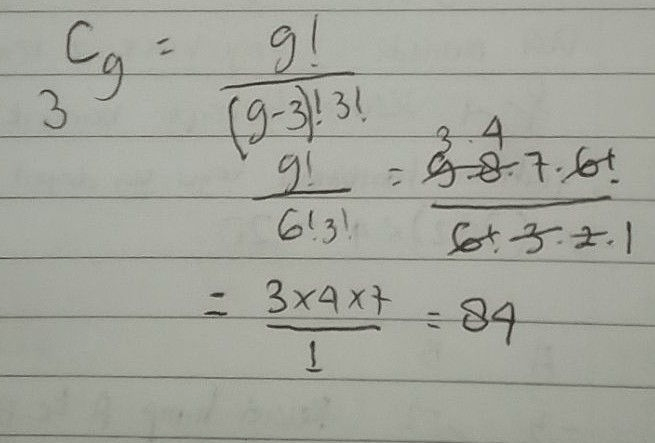 3 C 9 = 9! / (9-3)! 3!
9! / 6! 3! = 3 · 4 9 · 8 · 7 · 6! / 6! · 3 · 2 · 1
= 3 × 4 × 7 / 1 = 84